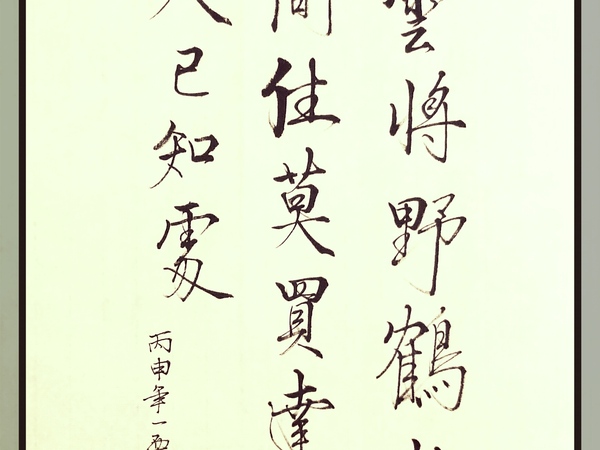 雲將野鶴
間住莫買達
人已知處
丙申年一